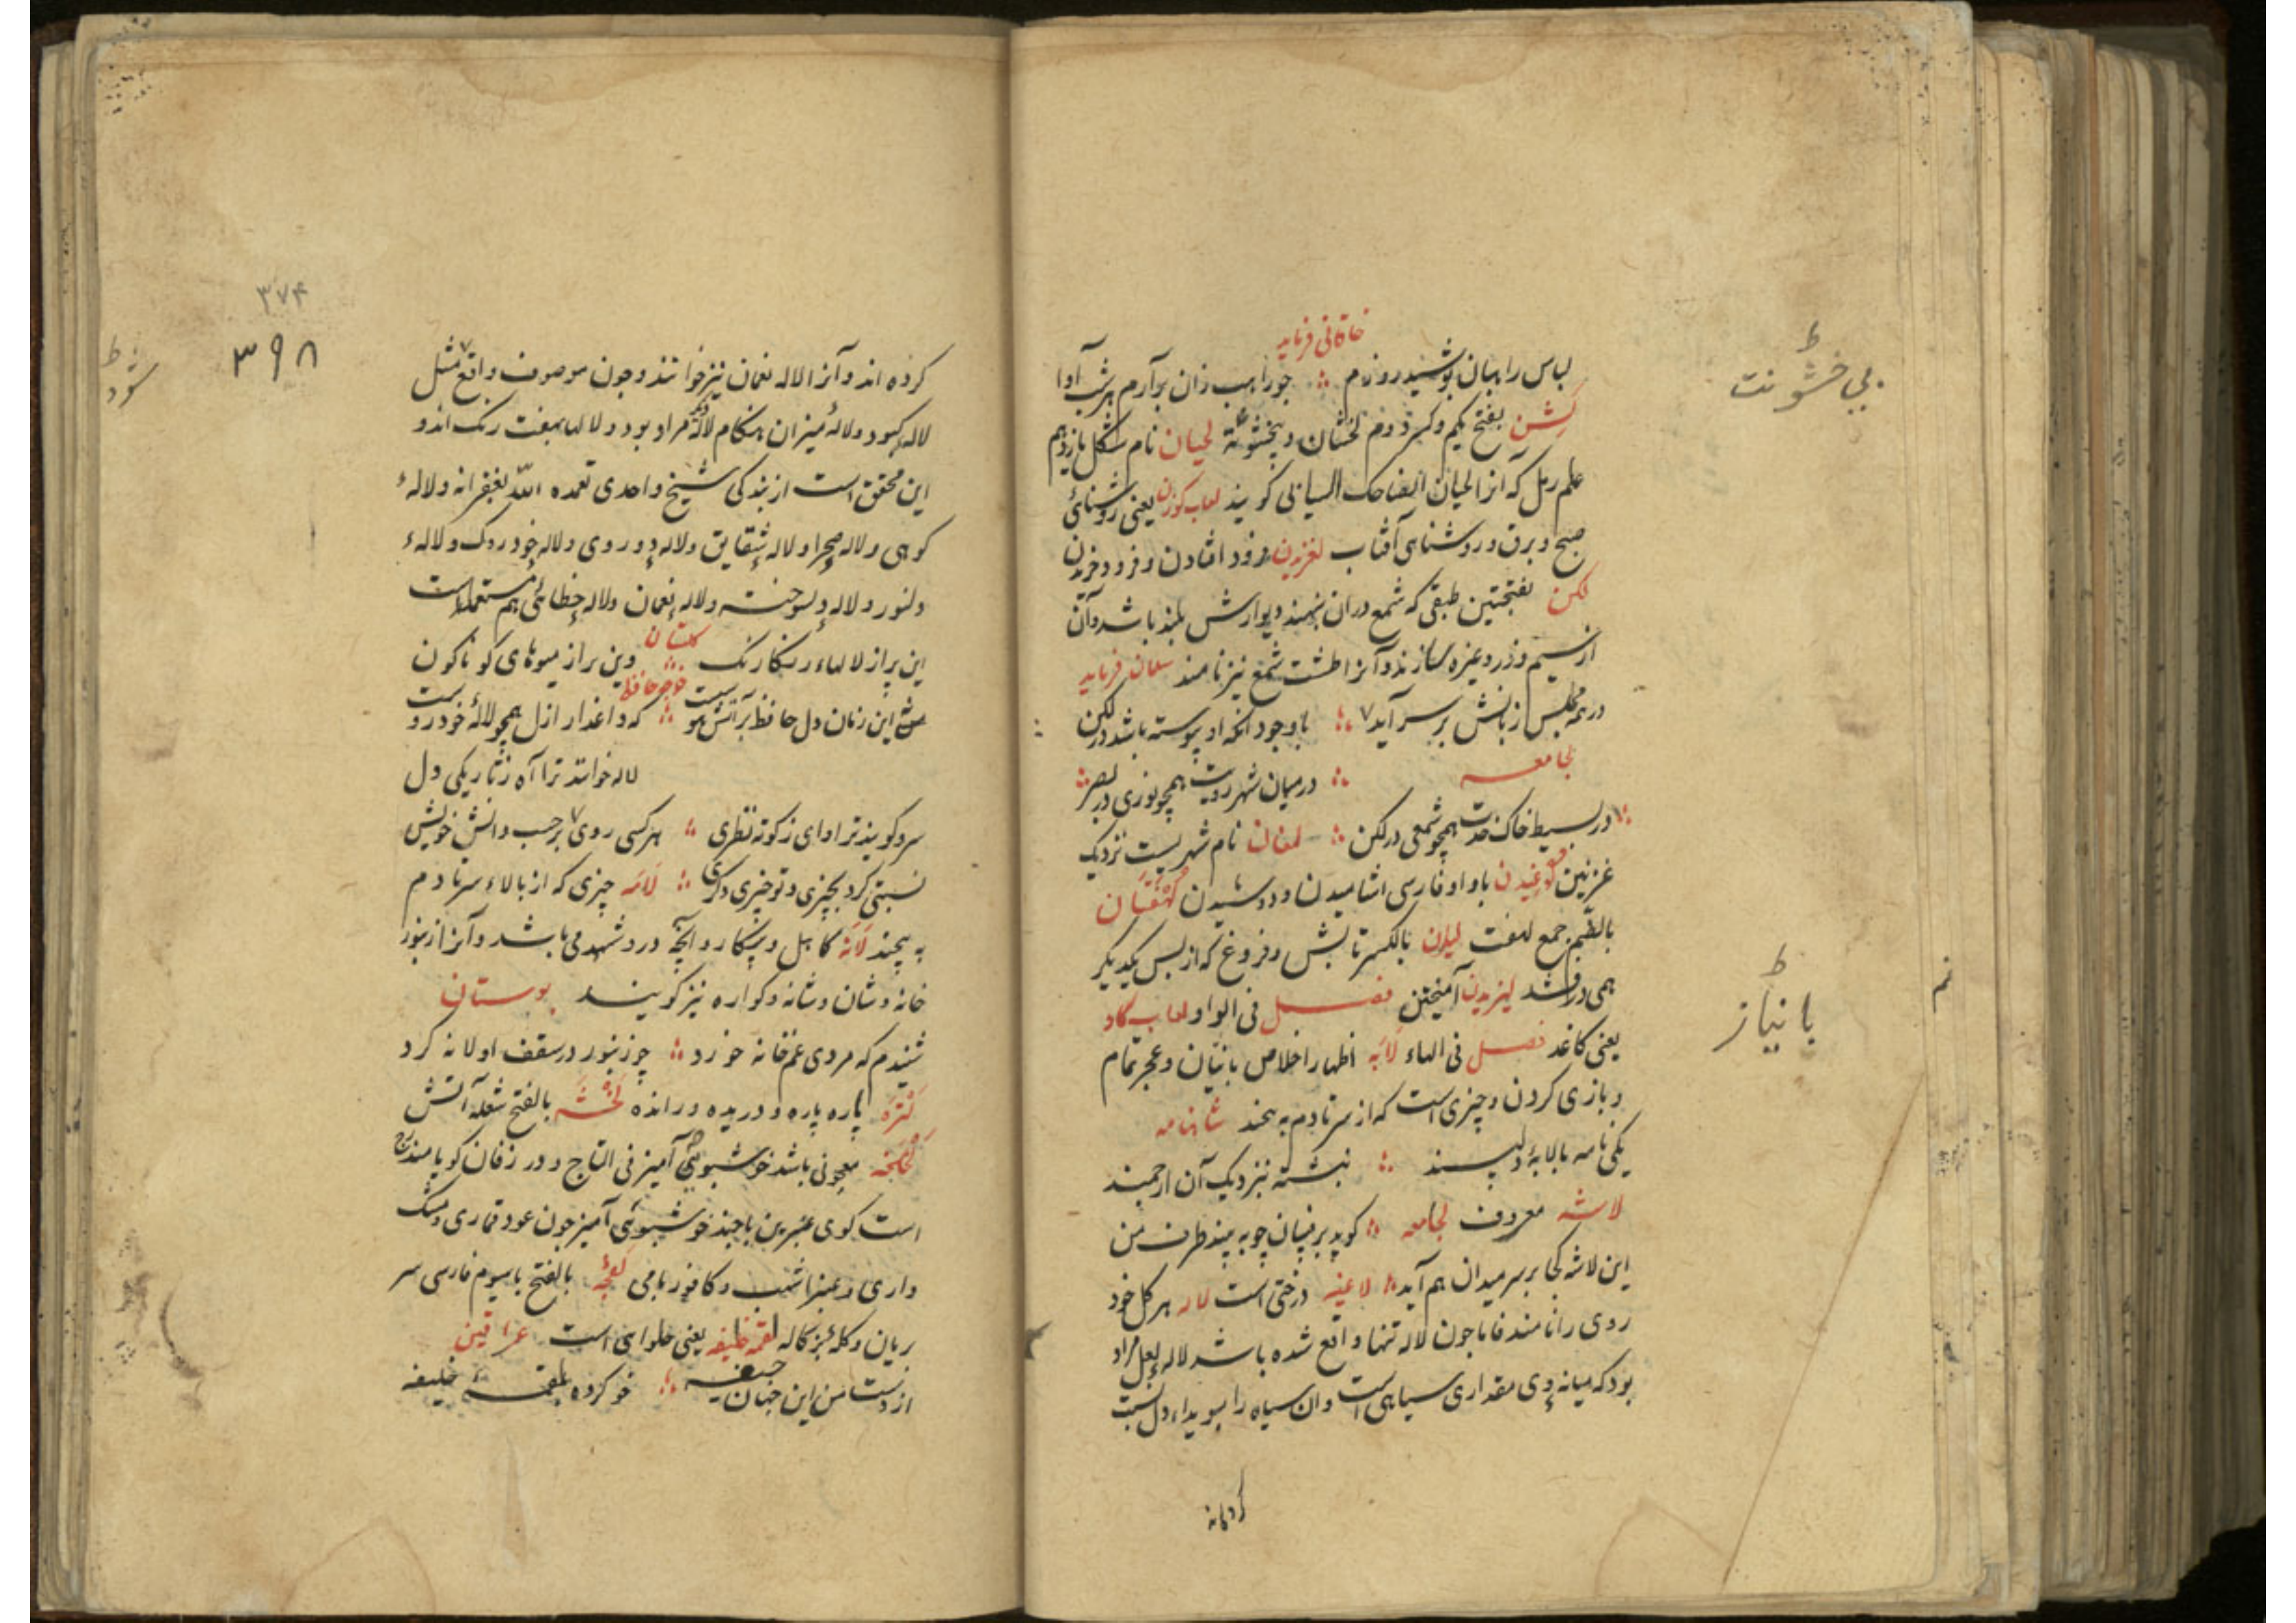 خاقانی فرماید
لباس راهبان پوشیده روزم ؞ چو راهب زان برآرم هر شب آوا
لشن بفتح یکم وکسر دوم لخشان و بیخشونة لحیان نام شکل یازدهم
علم رمل که آنرا لحیان الضاحک السیانی گویند لعاب گوزن یعنی روشنائی
صبح و برق و روشناهی آفتاب لغزیدن فرود افتادن و فرود خزیدن
لکن بفتحتین طبقی که شمع دران نهند و دیوارش بلند باشد وآن
از سیم وزر وغیره سازند وآنرا طشت شمع نیز نامند سلمان فرماید
در همه مجلس زبانش بر سر آید ؞ با وجود انکه او پیوسته باشد در لکن
لجامعه ؞ درمیان شهر رویت همچو نوری در بصر ؞
در بسیط خاک قدت همچو شمعی در لکن ؞ لمغان نام شهریست نزدیک
غزنین لوغیدن با واو فارسی اشامیدن و دوشیدن لهفتان
بالضم جمع لهفت لیان بالکسر تابش و فروغ که از پس یکدیگر
همی درافشد لیزیدن آمیختن فصل فی الواو لعاب گاو
یعنی کاغد فصل فی الهاء لابه اظهار اخلاص بانیان وعجز تمام
و بازی کردن و چیزی است که از سر تا دم به پیچند شاهنامه
یکی نامه با لابهٔ دلپسند ؞ نبشته نزدیک آن ارجمند
لاشه معروف لجامعه ؞ کوید برنپان چو به بیند طرف من
این لاشه کجا بر سر میدان هم آید ؞ لاغیه درختی است لاله هر گل خود
روی را نامند فاما چون لاله تنها واقع شده باشد لالهٔ لعل مراد
بود که میانهٔ وی مقداری سیاهی است وان سیاه را سویداء دل نسبت
کرده اند
بی خشونت
با نیاز
۳۷۴
۳۹۸
کرده اند وآنرا لاله نعمان نیز خوانند وچون موصوف واقع مثل
لاله کبود و لالهٔ میزان هنکام لالهٔ دیگر مراد بود و لالها بهفت رنک اند و
این محقق است از بندکی شیخ واحدی تغمده الله بغفرانه و لالهٔ
کوهی و لاله صحرا و لاله شقایق و لاله دوروی و لاله خودروک و لالهٔ
دلنور و لاله دلسوخته و لاله نعمان و لاله خطائی هم مستعملست
کلستان
این پر از لالهاء رنکارنک ؞ وین پر از میوهای کوناکون
خواجه حافظ
نه این زمان دل حافظ بر آتش هوسیت ؞ که داغدار ازل همچو لالهٔ خودروست
لاله خوانند ترا آه زتاریکی دل
سرو کویند ترا وای ز کوته نظری ؞ هرکسی روی برحسب دانش خویش
نسبتی کرد بچیزی و تو چیزی دگری ؞ لامه چیزی که از بالاء سر تا دم
به پیچند لانه کاهل و بیکار و آنچه درو شهد می باشد وآنرا زنبور
خانه و شان و شانه و کواره نیز گویند بوستان
شنیدم که مردی غم خانه خورد ؞ چو زنبور در سقف او لانه کرد
لتره پاره پاره و دریده و رانده لخشه بالفتح شعله آتش
لخلخه معجونی باشد خوشبوئی آمیز فی التاج و در زفان کویا مندرج
است کوی عنبرین با چند خوشبوئی آمیز چون عود قماری و مشک
داری و عنبر اشهب و کافور بامی لغچه بالفتح باسیوم فارسی سر
بریان وکله بزکاله لقمه خلیفه یعنی حلواهی است عراقین
از دست من این جهان جیفه ؞ خو کرده بلقمهٔ خلیفه
شود